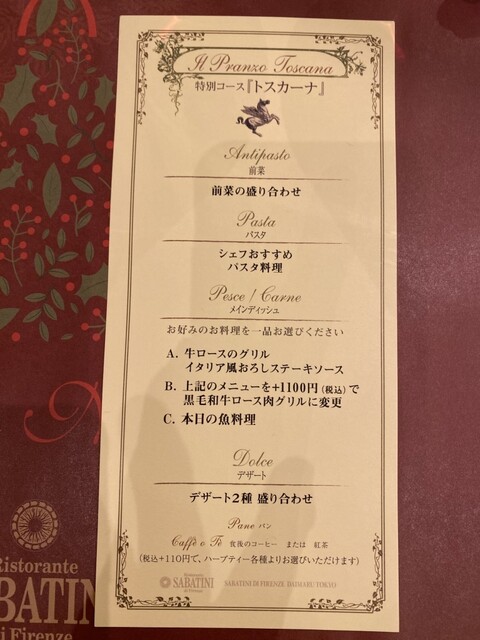 Il Pranzo Toscana
特別コース『トスカーナ』
Antipasto
前菜
前菜の盛り合わせ
Pasta
パスタ
シェフおすすめ
パスタ料理
Pesce / Carne
メインディッシュ
お好みのお料理を一品お選びください
A. 牛ロースのグリル
イタリア風おろしステーキソース
B. 上記のメニューを+1100円(税込)で
黒毛和牛ロース肉グリルに変更
C. 本日の魚料理
Dolce
デザート
デザート2種 盛り合わせ
Pane パン
Caffè o Tè 食後のコーヒー または 紅茶
(税込+110円で、ハーブティー各種よりお選びいただけます)
Ristorante
SABATINI
di Firenze
SABATINI DI FIRENZE DAIMARU TOKYO
Ristorante
BATIN
di Firenze